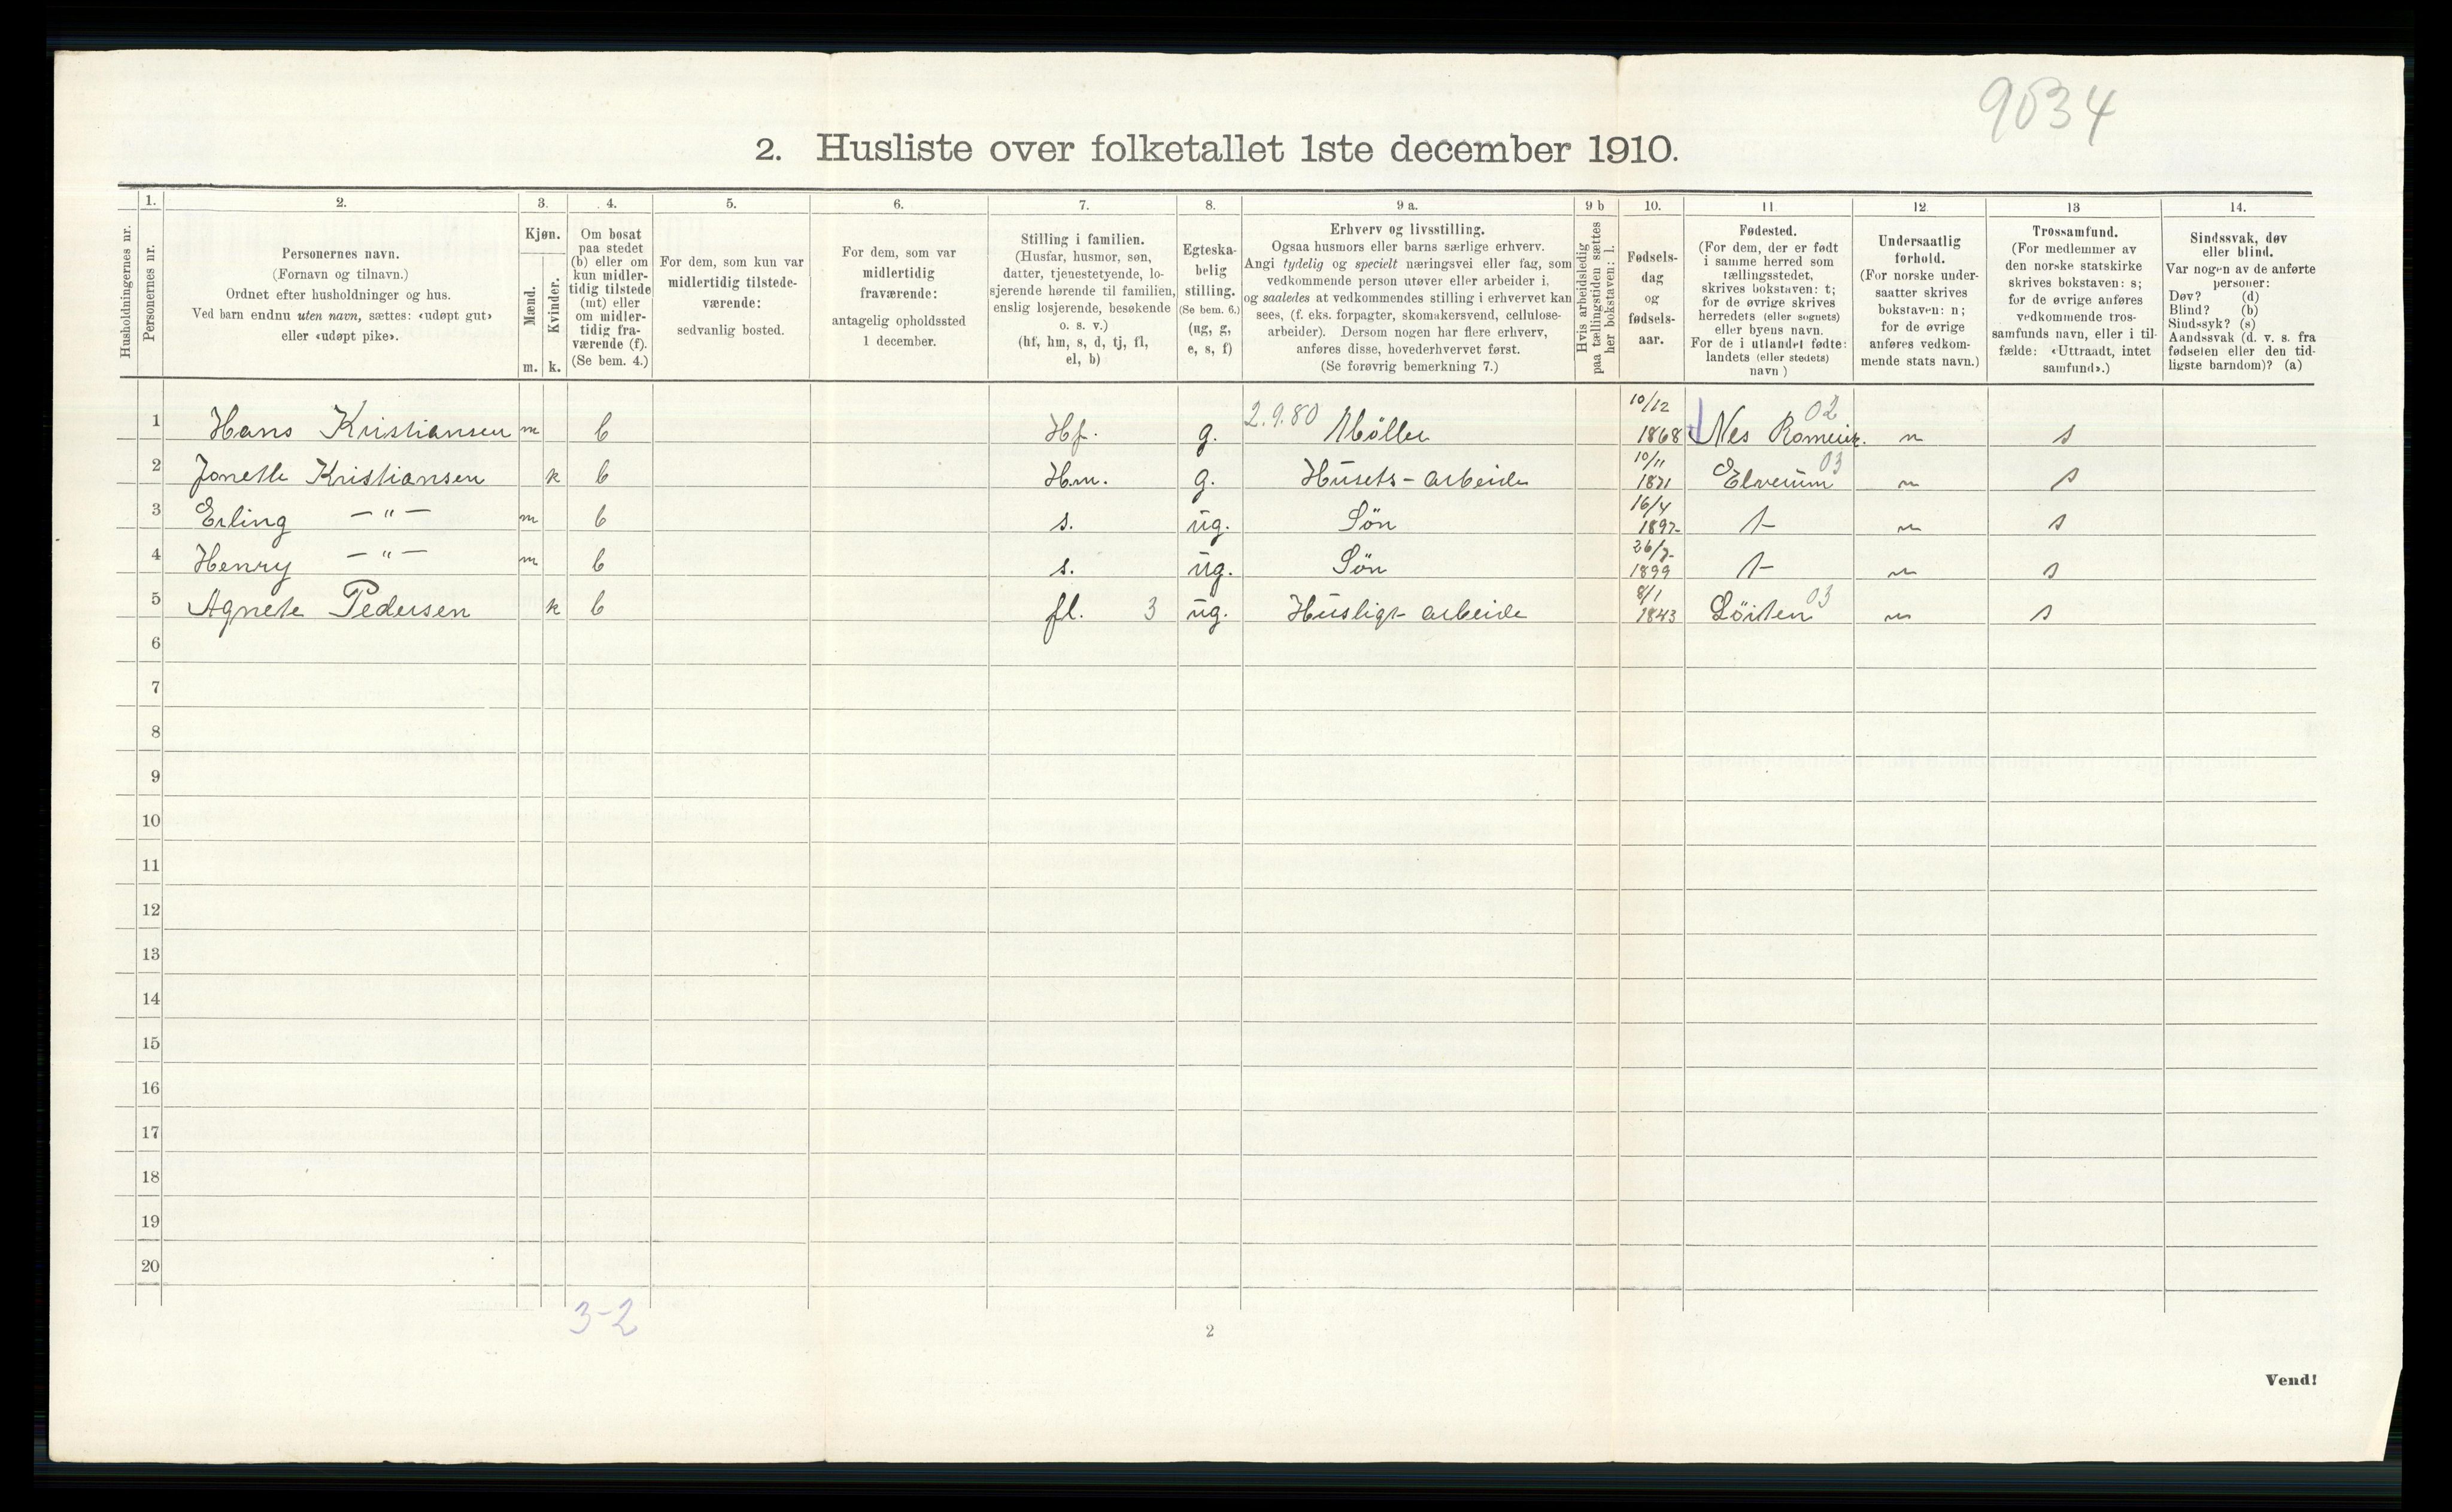 9034
2. Husliste over folketallet 1ste december 1910.
Husholdningernes nr.
1.
Personernes nr.
2.
Personernes navn.
(Fornavn og tilnavn.)
Ordnet efter husholdninger og hus.
Ved barn endnu uten navn, sættes: «udøpt gut»
eller «udøpt pike».
3.
Kjøn.
Mænd.
Kvinder.
m. k.
4.
Om bosat
paa stedet
(b) eller om
kun midler-
tidig tilstede
(mt) eller
om midler-
tidig fra-
værende (f).
(Se bem. 4.)
5.
For dem, som kun var
midlertidig tilstede-
værende:
sedvanlig bosted.
6.
For dem, som var
midlertidig
fraværende:
antagelig opholdssted
1 december.
7.
Stilling i familien.
(Husfar, husmor, søn,
datter, tjenestetyende, lo-
sjerende hørende til familien,
enslig losjerende, besøkende
o. s. v.)
(hf, hm, s, d, tj, fl,
el, b)
8.
Egteska-
belig
stilling.
(Se bem. 6.)
(ug, g,
e, s, f)
9 a.
Erhverv og livsstilling.
Ogsaa husmors eller barns særlige erhverv.
Angi tydelig og specielt næringsvei eller fag, som
vedkommende person utøver eller arbeider i,
og saaledes at vedkommendes stilling i erhvervet kan
sees, (f. eks. forpagter, skomakersvend, cellulose-
arbeider). Dersom nogen har flere erhverv,
anføres disse, hovederhvervet først.
(Se forøvrig bemerkning 7.)
9 b
Hvis arbeidsledig
paa tællingstiden sættes
her bokstaven: l.
10.
Fødsels-
dag
og
fødsels-
aar.
11
Fødested.
(For dem, der er født
i samme herred som
tællingsstedet,
skrives bokstaven: t;
for de øvrige skrives
herredets (eller sognets)
eller byens navn.
For de i utlandet fødte:
landets (eller stedets)
navn )
12.
Undersaatlig
forhold.
(For norske under-
saatter skrives
bokstaven: n;
for de øvrige
anføres vedkom-
mende stats navn.)
13
Trossamfund.
(For medlemmer av
den norske statskirke
skrives bokstaven: s;
for de øvrige anføres
vedkommende tros-
samfunds navn, eller i til-
fælde: «Uttraadt, intet
samfund».)
14.
Sindssvak, døv
eller blind.
Var nogen av de anførte
personer:
Døv? (d)
Blind? (b)
Sindssyk? (s)
Aandssvak (d. v. s. fra
fødselen eller den tid-
ligste barndom)? (a)
1 Hans Kristiansen m b Hf. g. 2.9.80 Möller 10/12 1868 Nes Romerik. 02 n s
2 Jonette Kristiansen k b Hm. g. Husets-arbeide 10/11 1871 Elverum 03 n s
3 Erling —"— m b s. ug. Sön 16/4 1897 t n s
4 Henry —"— m b s. ug. Sön 26/7 1899 t n s
5 Agnete Pedersen k b fl. 3 ug. Husligt arbeide 8/1 1843 Löiten 03 n s
6
7
8
9
10
11
12
13
14
15
16
17
18
19
20
3-2
2
Vend!